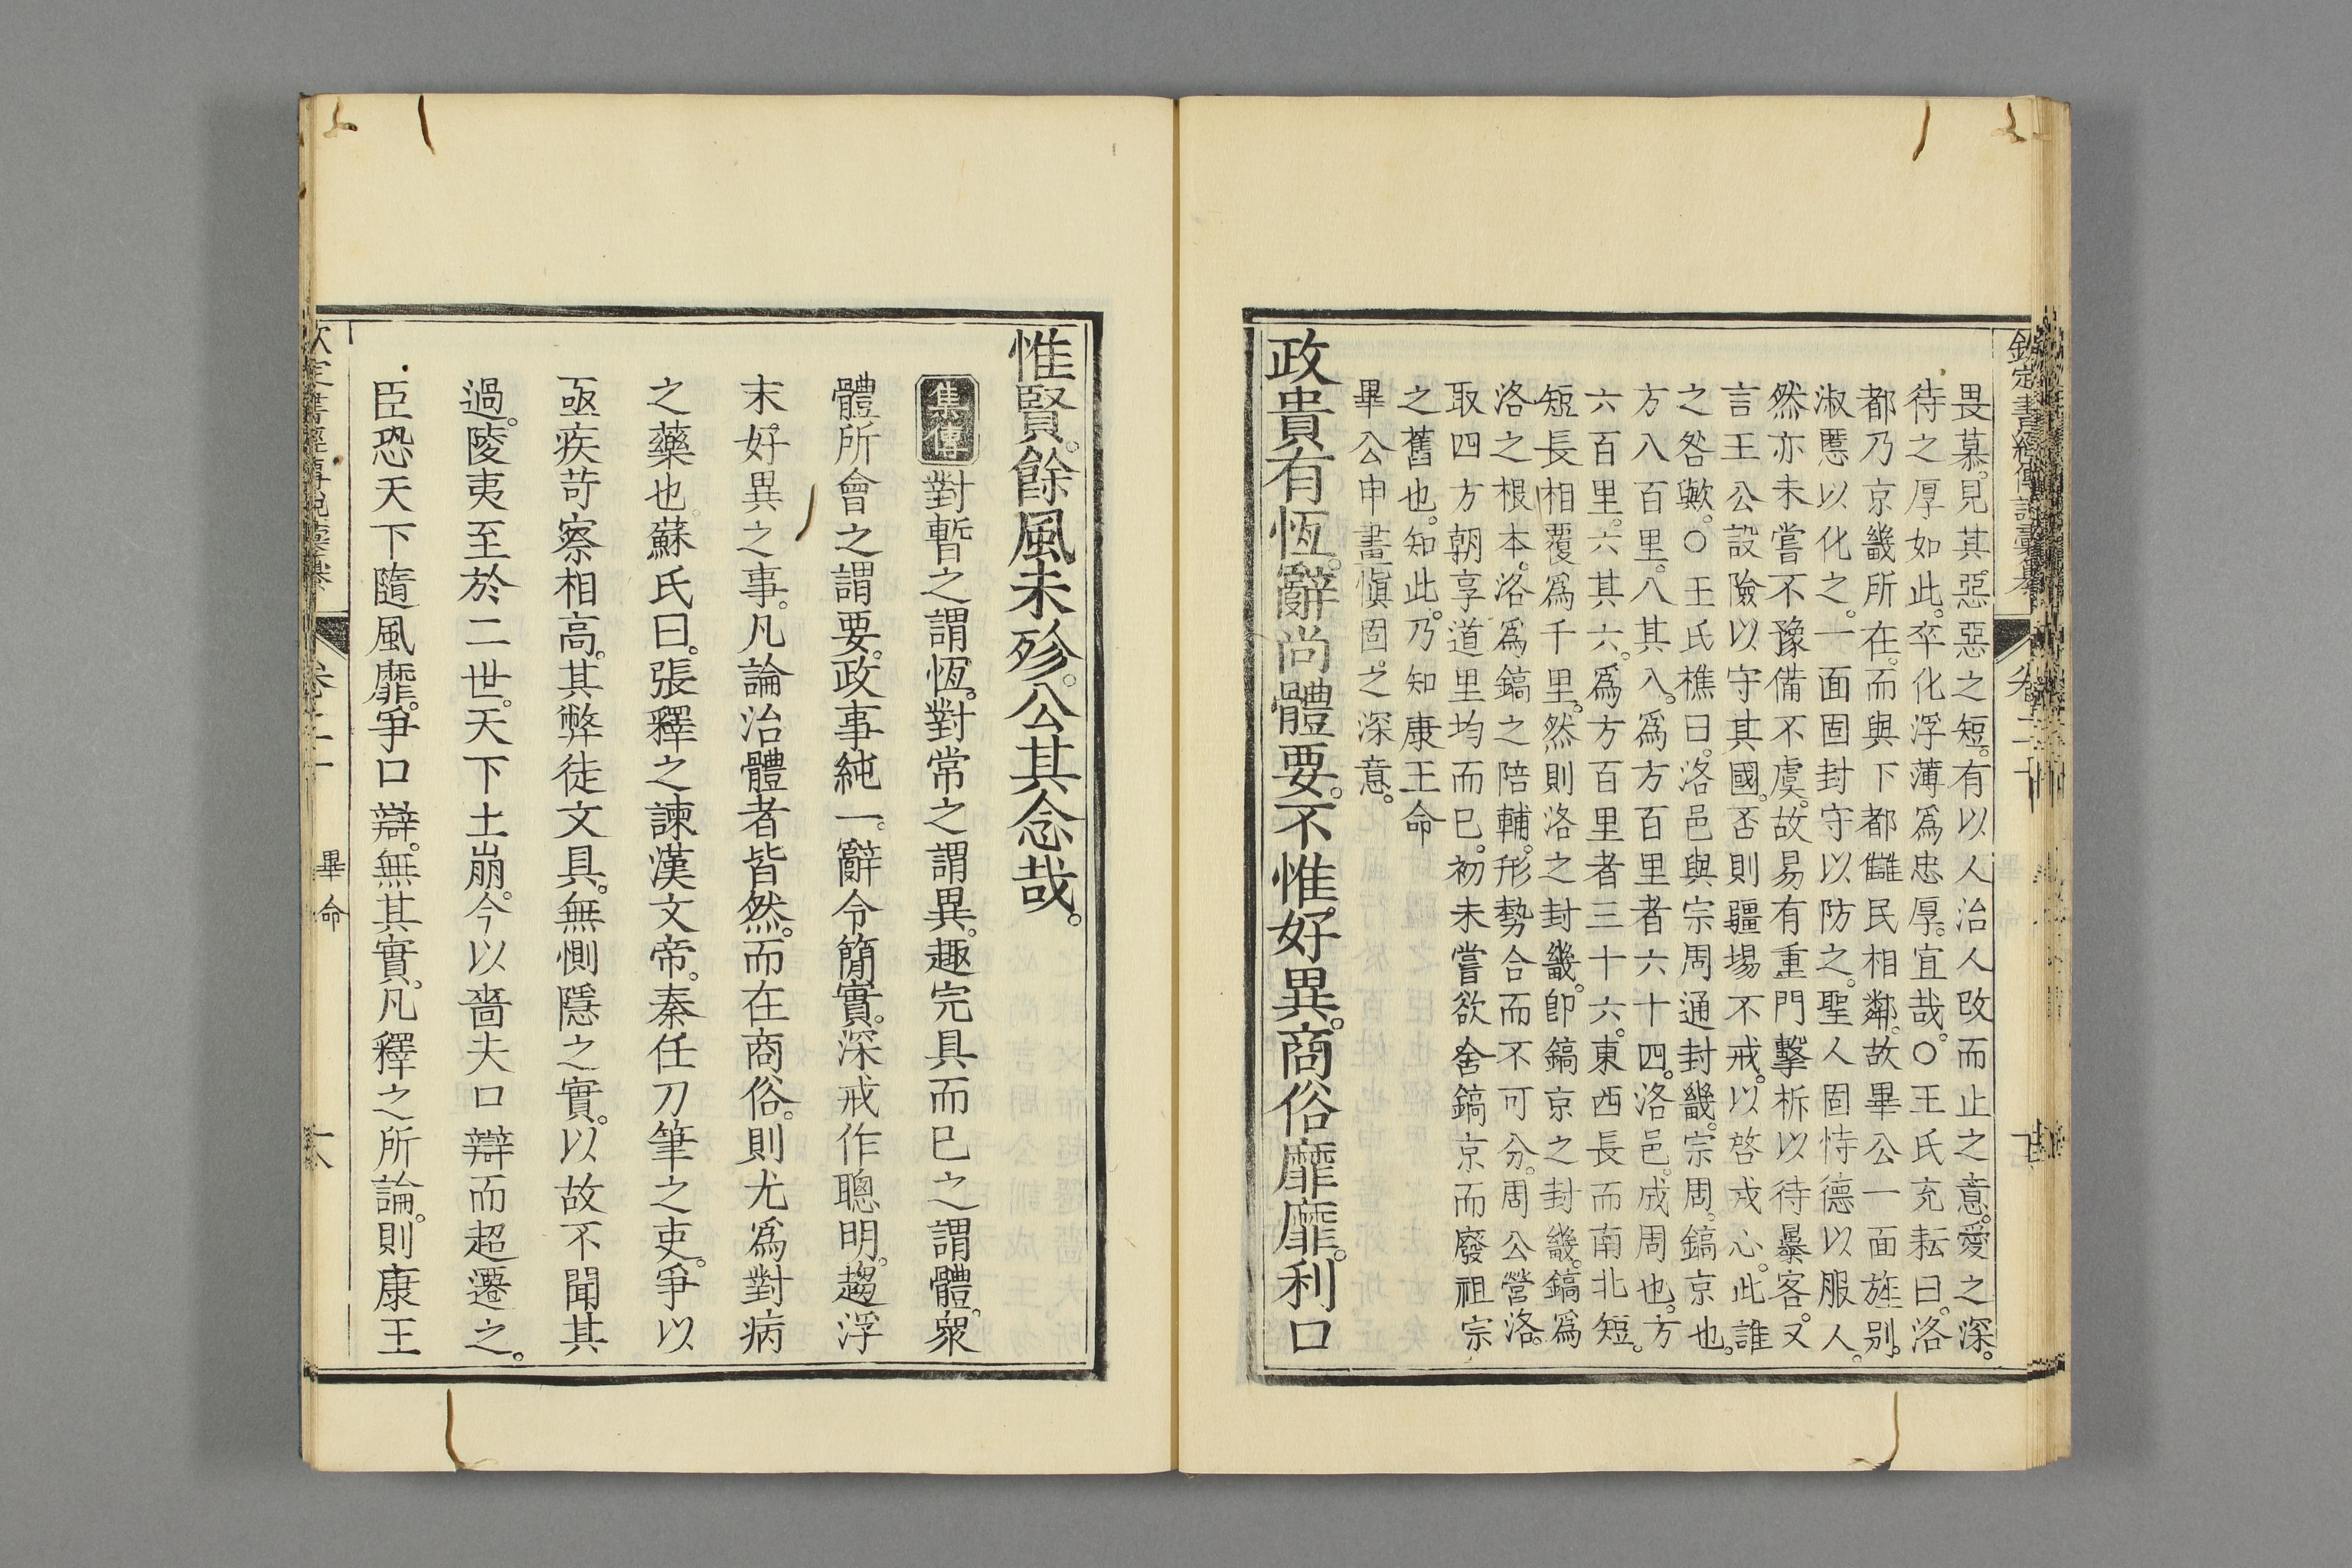 欽定書經傳說彙纂
卷二十
畏慕。見其惡惡之短。有以人治人改而止之意。愛之深。
待之厚如此。卒化浮薄爲忠厚。宜哉。○王氏充耘曰。洛
都乃京畿所在。而與下都讎民相鄰。故畢公一面旌别。
淑慝以化之。一面固封守以防之。聖人固恃德以服人。
然亦未嘗不豫備不虞。故易有重門擊柝以待暴客。又
言王公設險以守其國。否則疆埸不戒。以啓戎心。此誰
之咎歟。○王氏樵曰。洛邑與宗周通封畿。宗周。鎬京也。
方八百里。八其八。爲方百里者六十四。洛邑。成周也。方
六百里。六其六。爲方百里者三十六。東西長而南北短。
短長相覆爲千里。然則洛之封畿。卽鎬京之封畿。鎬爲
洛之根本。洛爲鎬之陪輔。形勢合而不可分。周公營洛。
取四方朝享道里均而已。初未嘗欲舍鎬京而廢祖宗
之舊也。知此。乃知康王命
畢公申畫愼固之深意。
政貴有恆。辭尚體要。不惟好異。商俗靡靡。利口
惟賢。餘風未殄。公其念哉。
集傳 對暫之謂恆。對常之謂異。趣完具而已之謂體。衆
體所會之謂要。政事純一。辭令簡實。深戒作聰明。趨浮
末。好異之事。凡論治體者皆然。而在商俗。則尤爲對病
之藥也。蘇氏曰。張釋之諫漢文帝。秦任刀筆之吏。爭以
亟疾苛察相高。其弊徒文具。無惻隱之實。以故不聞其
過。陵夷至於二世。天下土崩。今以嗇夫口辯而超遷之。
臣恐天下隨風靡。爭口辯。無其實。凡釋之所論。則康王
欽定書經傳說彙纂
卷二十
畢命
六